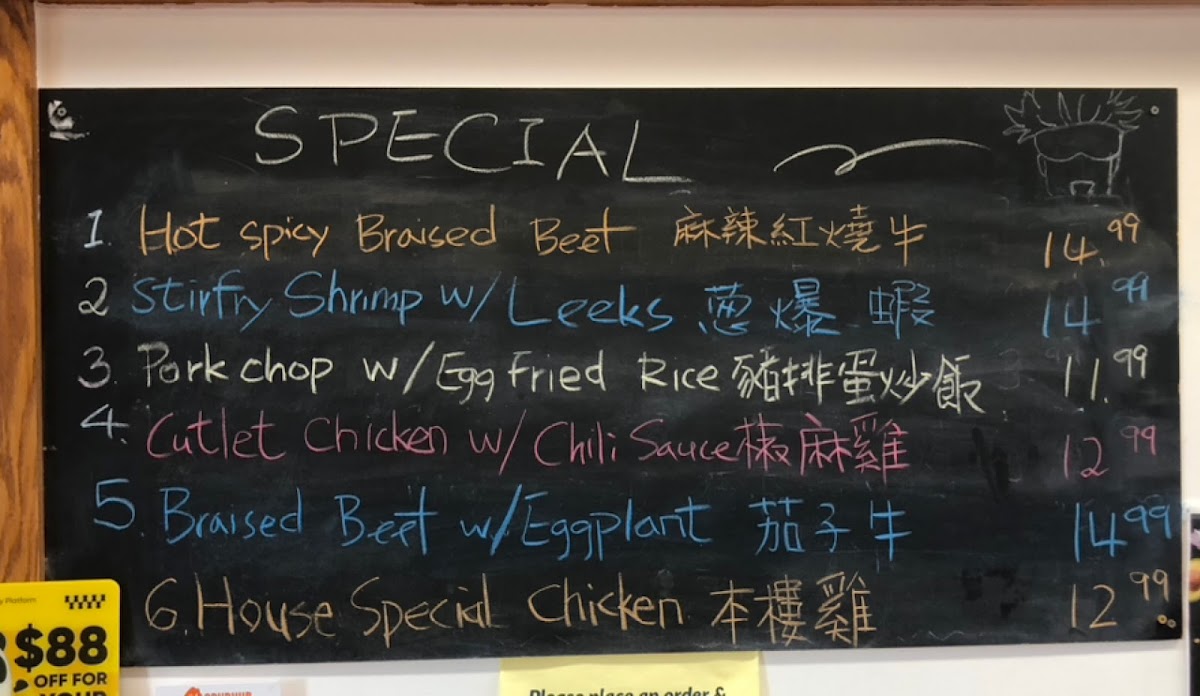 SPECIAL
1. Hot spicy Braised Beef 麻辣紅燒牛 14.99
2 Stirfry Shrimp w/ Leeks 葱爆 蝦 14 99
3. Pork chop w/Egg Fried Rice 豬排蛋炒飯 11.99
4. Cutlet Chicken w/ Chili Sauce 椒麻雞 12 99
5. Braised Beef w/Eggplant 茄子牛 14 99
6. House Special Chicken 本樓雞 12 99
Platform
$88
OFF FOR
YOUR
GRUBHUB
Please place an order &